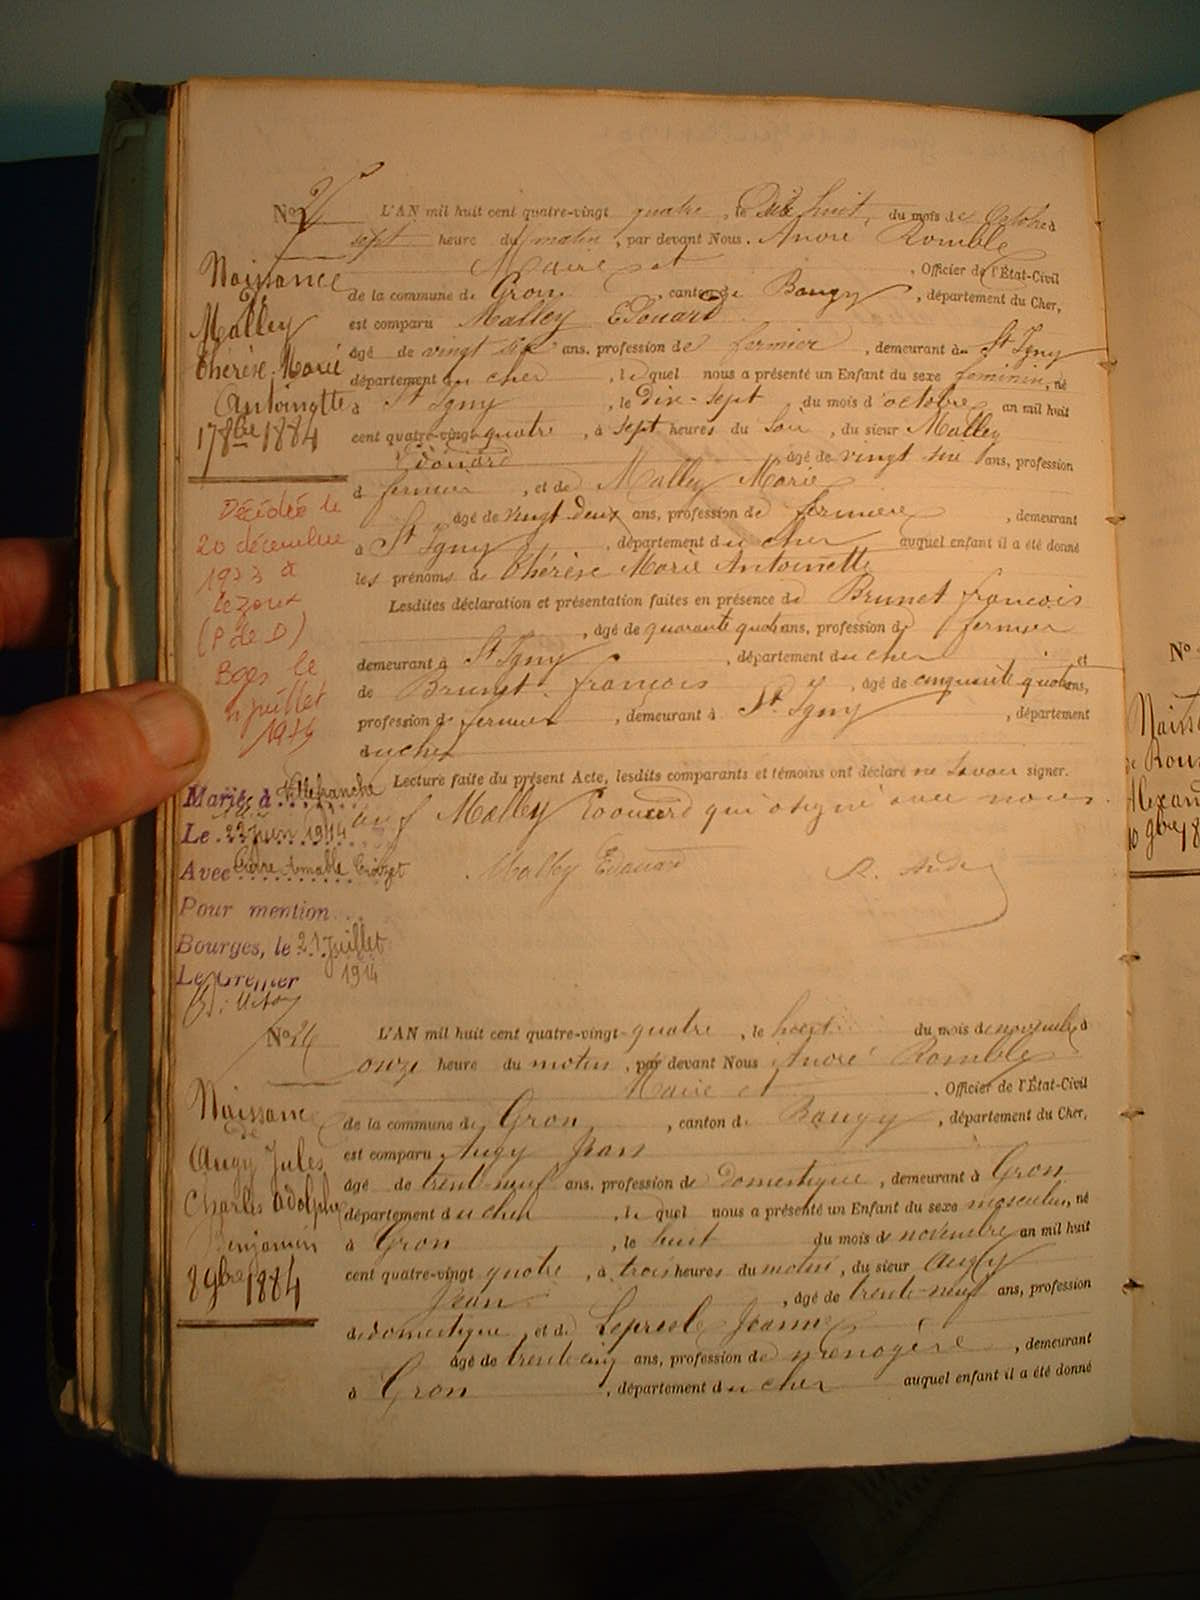 L'AN mil huit cent quatre-vingt quatre, le Dix huit, du mois de Octobre à
sept heure du matin, par devant Nous. André Romble
Maire et , Officier de l'État-Civil
de la commune de Gron , canton de Baugy , département du Cher,
est comparu Malley Edouard
âgé de vingt six ans, profession de fermier , demeurant à St Igny
département du cher , lequel nous a présenté un Enfant du sexe feminin, né
à St Igny , le Dix-sept du mois d'octobre an mil huit
cent quatre-vingt-quatre , à sept heures du Soir , du sieur Malley
Edouard âgé de vingt six ans, profession
d fermier , et de Malley Marie
âgé de vingt deux ans, profession de fermiere , demeurant
à St Igny , département du cher auquel enfant il a été donné
les prénoms de Thérèse Marie Antoinette
Lesdites déclaration et présentation faites en présence de Brunet françois
, âgé de quarante quatre ans, profession de fermier
demeurant à St Igny , département du cher et
de Brunet françois , âgé de cinquante quatre ans,
profession de fermier , demeurant à St Igny , département
du cher
Lecture faite du présent Acte, lesdits comparants et témoins ont déclaré ne savoir signer.
auf Malley Edouard qui a signé avec nous.
Malley Edouard
Naissance
de
Malley
Thérèse Marie
Antoinette
17 8bre 1884
Décédée le
20 décembre
1973 à
Lezoux
(P de D)
Bges le
juillet
1974
Marié à Villefranche
Le 23 juin 1914
Avec Pierre Amable
Pour mention
Bourges, le 21 juillet
1914
Le Greffier
No 26 L'AN mil huit cent quatre-vingt-quatre , le huit du mois de novembre à
onze heure du matin, par devant Nous André Romble
Maire et , Officier de l'État-Civil
de la commune de Gron , canton de Baugy , département du Cher,
est comparu Augy Jean
âgé de trente-neuf ans, profession de domestique , demeurant à Gron
département du cher , lequel nous a présenté un Enfant du sexe masculin, né
à Gron , le huit du mois de novembre an mil huit
cent quatre-vingt quatre , à trois heures du matin , du sieur Augy
Jean , âgé de trente-neuf ans, profession
de domestique , et de Lepresle Jeanne
âgé de trente cinq ans, profession de menagère , demeurant
à Gron , département du cher auquel enfant il a été donné
Naissance
de
Augy Jules
Charles Adolphe
Benjamin
8 9bre 1884
No